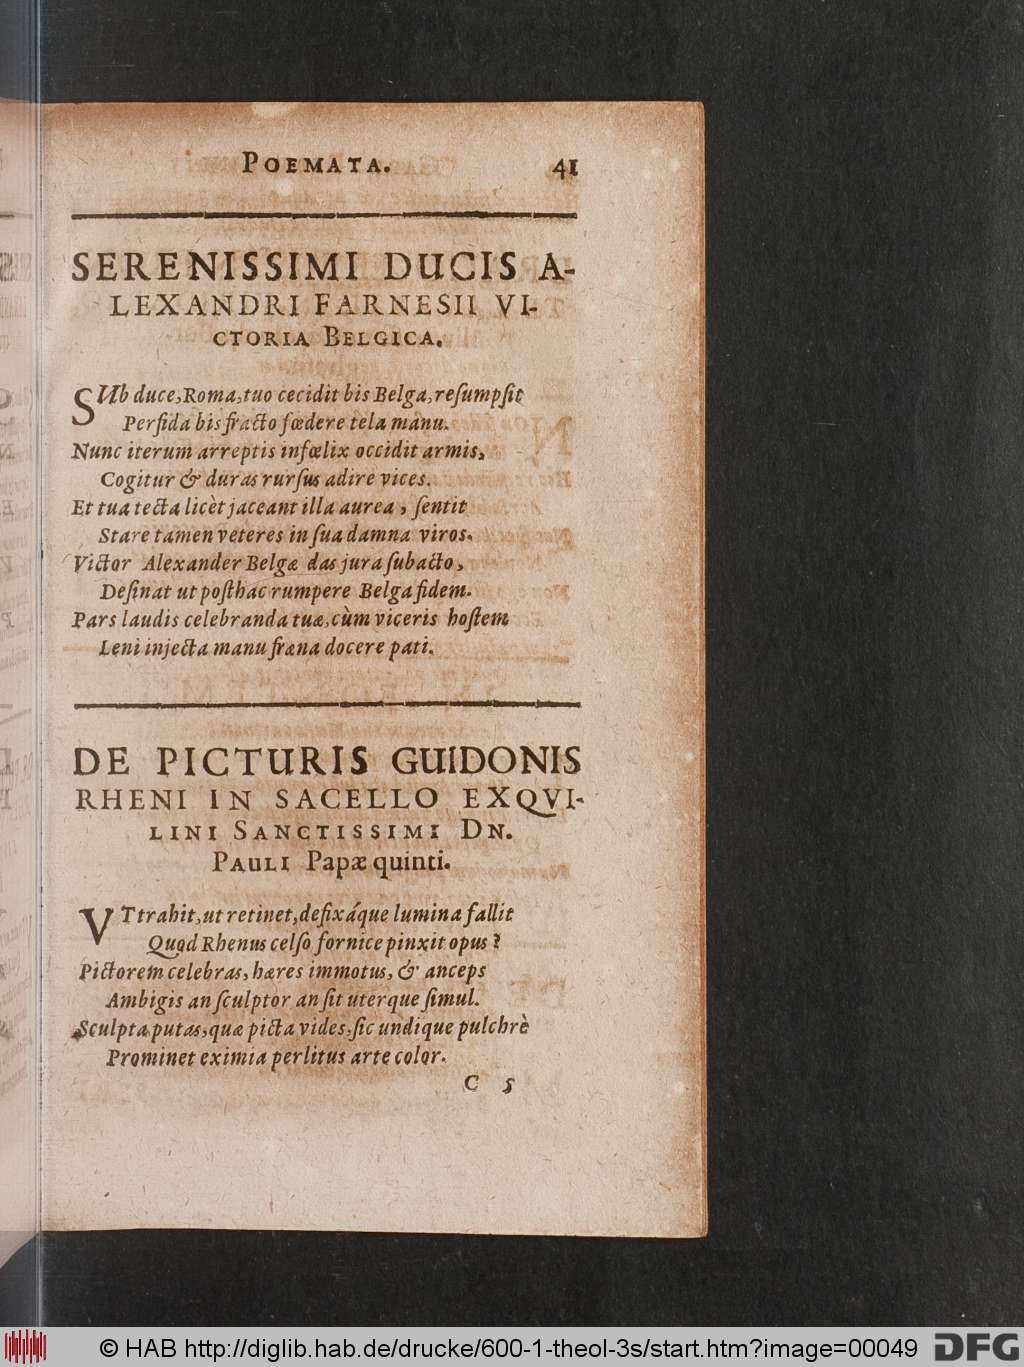 POEMATA. 41
SERENISSIMI DUCIS A-
LEXANDRI FARNESII VI-
CTORIA BELGICA.
SUb duce, Roma, tuo cecidit bis Belga, reſumpſit
Perfida bis fracto fœdere tela manu.
Nunc iterum arreptis infœlix occidit armis,
Cogitur & duras rurſus adire vices.
Et tua tecta licèt jaceant illa aurea, ſentit
Stare tamen veteres in ſua damna viros.
Victor Alexander Belgæ das jura ſubacto,
Deſinat ut poſthac rumpere Belga fidem.
Pars laudis celebranda tuæ, cùm viceris hoſtem
Leni injecta manu fræna docere pati.
DE PICTURIS GUIDONIS
RHENI IN SACELLO EXQVI-
LINI SANCTISSIMI DN.
PAULI Papæ quinti.
VT trahit, ut retinet, defixáque lumina fallit
Quod Rhenus celſo fornice pinxit opus?
Pictorem celebras, hæres immotus, & anceps
Ambigis an ſculptor an ſit uterque ſimul.
Sculpta putas, quæ picta vides, ſic undique pulchrè
Prominet eximia perlitus arte color.
C 5
© HAB http://diglib.hab.de/drucke/600-1-theol-3s/start.htm?image=00049 DFG